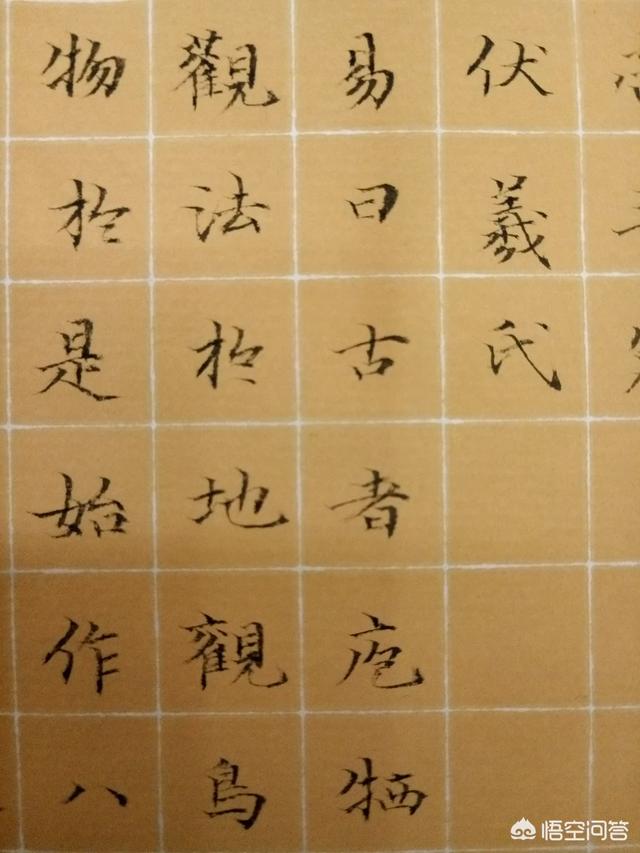 伏羲氏
易曰古者庖牺
觀法於地觀鳥
物於是始作八
悟空问答